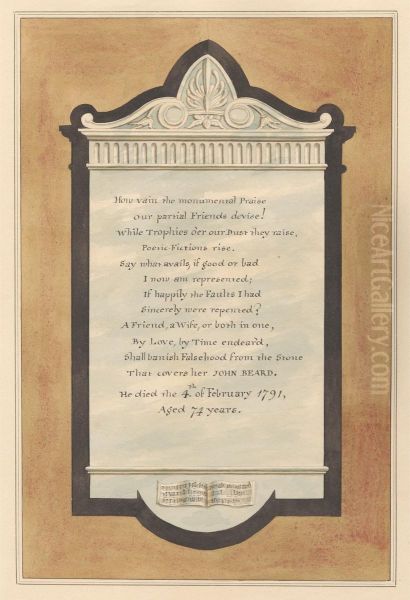 How vain the monumental Praise
our partial Friends devise!
While Trophies o'er our Dust they raise,
Poetic Fictions rise.
Say what avails, if good or bad
I now am represented;
If happily the Faults I had
Sincerely were repented?
A Friend, a Wife, or both in one,
By Love, by Time endear'd,
Shall banish Falsehood from the Stone
That covers her JOHN BEARD.
He died the 4th of February 1791,
Aged 74 years.
NiceArtGallery.com